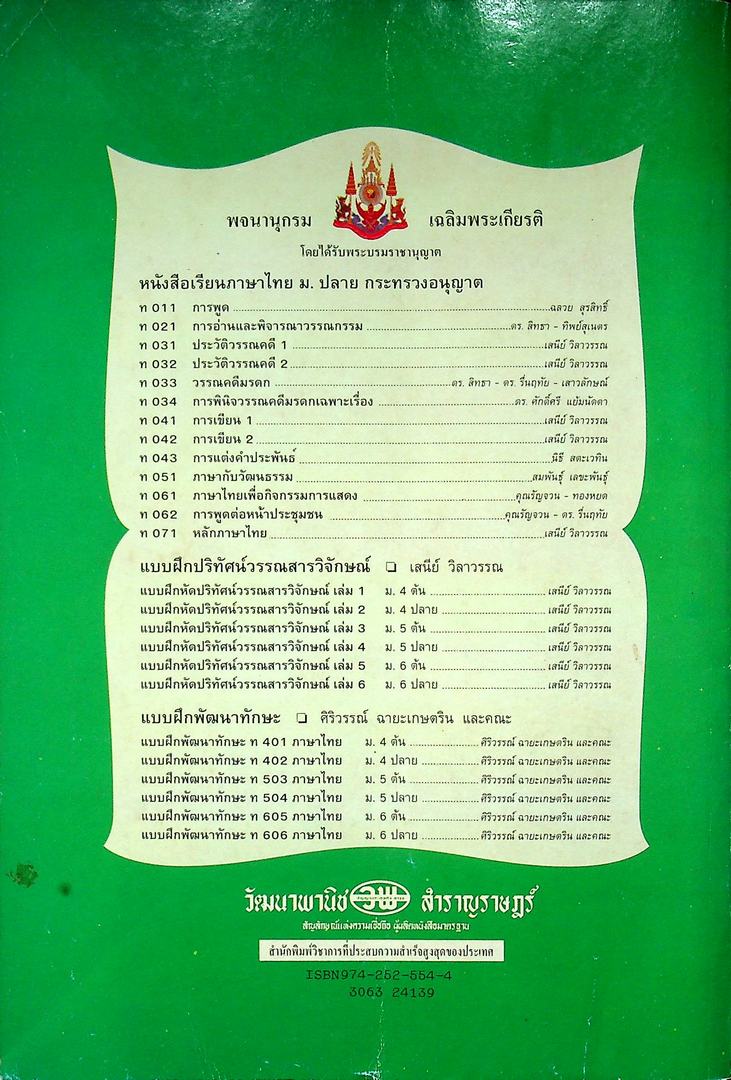 พจนานุกรม เฉลิมพระเกียรติ
โดยได้รับพระบรมราชานุญาต
หนังสือเรียนภาษาไทย ม. ปลาย กระทรวงอนุญาต
ท 011 การพูด ฉลวย สุรสิทธิ์
ท 021 การอ่านและพิจารณาวรรณกรรม ดร. สิทธา - ทิพย์สุเนตร
ท 031 ประวัติวรรณคดี 1 เสนีย์ วิลาวรรณ
ท 032 ประวัติวรรณคดี 2 เสนีย์ วิลาวรรณ
ท 033 วรรณคดีมรดก ดร. สิทธา - ดร. รื่นฤทัย - เสาวลักษณ์
ท 034 การพินิจวรรณคดีมรดกเฉพาะเรื่อง ดร. ศักดิ์ศรี แย้มนัดดา
ท 041 การเขียน 1 เสนีย์ วิลาวรรณ
ท 042 การเขียน 2 เสนีย์ วิลาวรรณ
ท 043 การแต่งคำประพันธ์ นิธี สตะเวทิน
ท 051 ภาษากับวัฒนธรรม สมพันธุ์ เลขะพันธุ์
ท 061 ภาษาไทยเพื่อกิจกรรมการแสดง คุณรัญจวน - ทองหยด
ท 062 การพูดต่อหน้าประชุมชน คุณรัญจวน - ดร. รื่นฤทัย
ท 071 หลักภาษาไทย เสนีย์ วิลาวรรณ
แบบฝึกปริทัศน์วรรณสารวิจักษณ์ ❏ เสนีย์ วิลาวรรณ
แบบฝึกหัดปริทัศน์วรรณสารวิจักษณ์ เล่ม 1 ม. 4 ต้น เสนีย์ วิลาวรรณ
แบบฝึกหัดปริทัศน์วรรณสารวิจักษณ์ เล่ม 2 ม. 4 ปลาย เสนีย์ วิลาวรรณ
แบบฝึกหัดปริทัศน์วรรณสารวิจักษณ์ เล่ม 3 ม. 5 ต้น เสนีย์ วิลาวรรณ
แบบฝึกหัดปริทัศน์วรรณสารวิจักษณ์ เล่ม 4 ม. 5 ปลาย เสนีย์ วิลาวรรณ
แบบฝึกหัดปริทัศน์วรรณสารวิจักษณ์ เล่ม 5 ม. 6 ต้น เสนีย์ วิลาวรรณ
แบบฝึกหัดปริทัศน์วรรณสารวิจักษณ์ เล่ม 6 ม. 6 ปลาย เสนีย์ วิลาวรรณ
แบบฝึกพัฒนาทักษะ ❏ ศิริวรรณ์ ฉายะเกษตริน และคณะ
แบบฝึกพัฒนาทักษะ ท 401 ภาษาไทย ม. 4 ต้น ศิริวรรณ์ ฉายะเกษตริน และคณะ
แบบฝึกพัฒนาทักษะ ท 402 ภาษาไทย ม. 4 ปลาย ศิริวรรณ์ ฉายะเกษตริน และคณะ
แบบฝึกพัฒนาทักษะ ท 503 ภาษาไทย ม. 5 ต้น ศิริวรรณ์ ฉายะเกษตริน และคณะ
แบบฝึกพัฒนาทักษะ ท 504 ภาษาไทย ม. 5 ปลาย ศิริวรรณ์ ฉายะเกษตริน และคณะ
แบบฝึกพัฒนาทักษะ ท 605 ภาษาไทย ม. 6 ต้น ศิริวรรณ์ ฉายะเกษตริน และคณะ
แบบฝึกพัฒนาทักษะ ท 606 ภาษาไทย ม. 6 ปลาย ศิริวรรณ์ ฉายะเกษตริน และคณะ
วัฒนาพานิช วพ สำราญราษฎร์
สัญลักษณ์แห่งความเชื่อถือ ผู้ผลิตหนังสือมาตรฐาน
สำนักพิมพ์วิชาการที่ประสบความสำเร็จสูงสุดของประเทศ
ISBN974-252-554-4
3063 24139